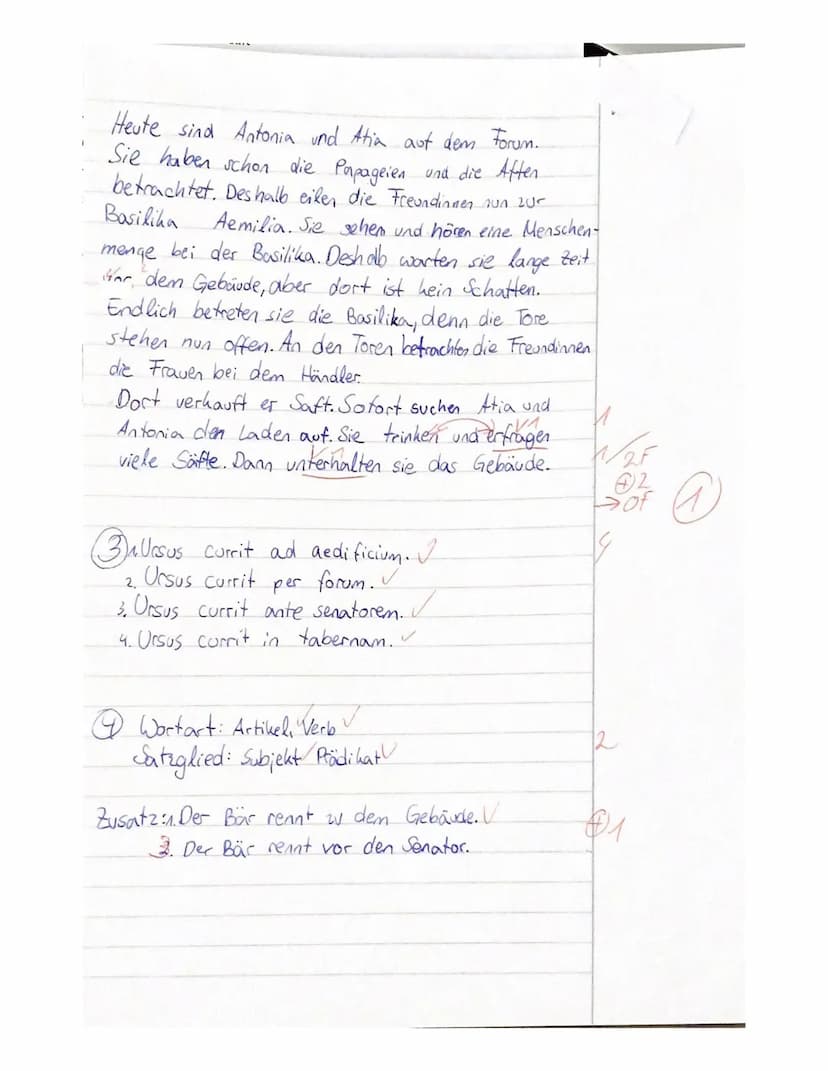 Heute sind Antonia und Atia auf dem Forum.
Sie haben schon die Papageien und die Affen
betrachtet. Deshalb eilen die Freundinnen nun zur
Basilika Aemilia. Sie sehem und hören eine Menschen-
menge bei der Basilika. Deshalb warten sie lange Zeit
vor dem Gebäude, aber dort ist kein Schatten.
Endlich betreten sie die Basilika, denn die Tore
stehen nun offen. An den Toren betrachten die Freundinnen
die Frauen bei dem Händler.
Dort verkauft er Saft. Sofort suchen Atia und
1
Antonia den Laden auf. Sie trinken und erfragen
viele Säfte. Dann unterhalten sie das Gebäude.
1/2F
⊕2
→0F
1
3 1. Ursus currit ad aedificium.
4
2. Ursus currit per forum.
3. Ursus currit ante senatorem.
4. Ursus currit in tabernam.
4 Wortart: Artikel, Verb
Satzglied: Subjekt Prädikat
2
Zusatz: 1. Der Bär rennt zu dem Gebäude.
⊕1
3. Der Bär rennt vor den Senator.